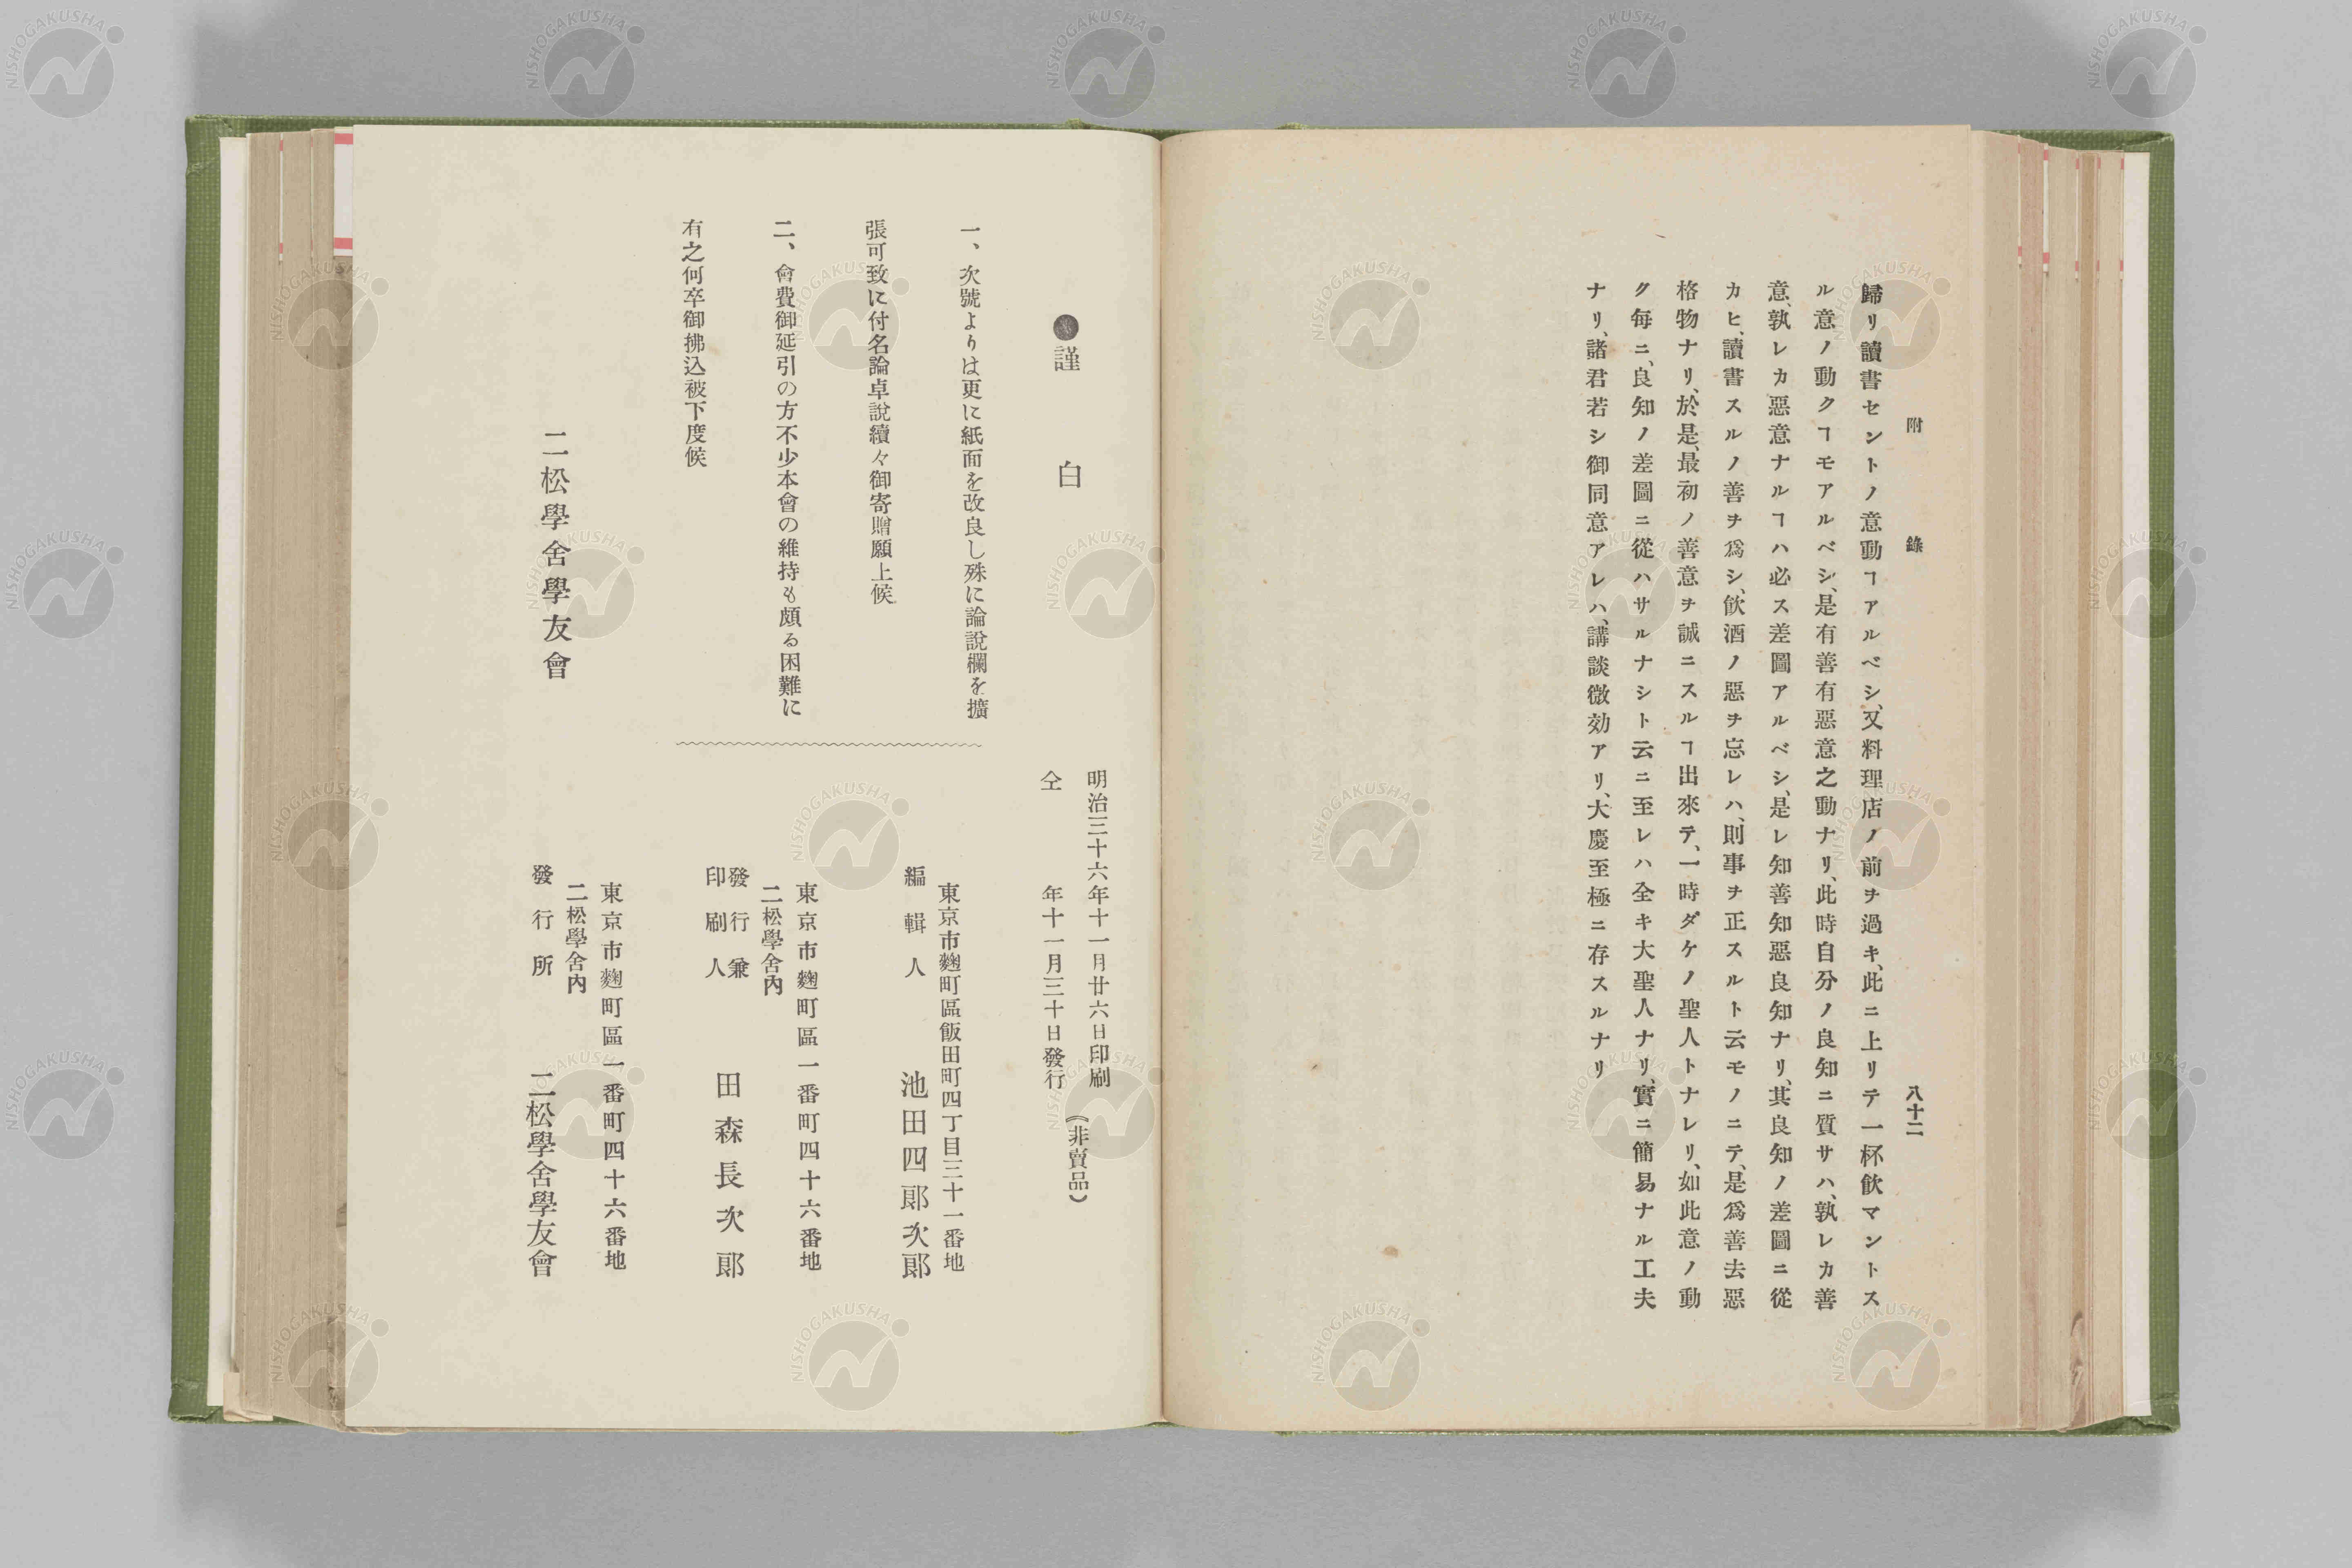 附錄
八十二
歸リ讀書セントノ意動ヿアルベシ、又料理店ノ前ヲ過キ、此ニ上リテ一杯飮マントス
ル意ノ動クヿモアルベシ、是有善有惡意之動ナリ、此時自分ノ良知ニ質サハ、孰レカ善
意、孰レカ惡意ナルヿハ必ス差圖アルベシ、是レ知善知惡良知ナリ、其良知ノ差圖ニ從
カヒ、讀書スルノ善ヲ爲シ、飮酒ノ惡ヲ忘レハ、則事ヲ正スルト云モノニテ、是爲善去惡
格物ナリ、於是、最初ノ善意ヲ誠ニスルヿ出來テ、一時ダケノ聖人トナレリ、如此意ノ動
ク每ニ、良知ノ差圖ニ從ハサルナシト云ニ至レハ全キ大聖人ナリ、實ニ簡易ナル工夫
ナリ、諸君若シ御同意アレハ、講談微効アリ、大慶至極ニ存スルナリ
●謹白
一、次號よりは更に紙面を改良し殊に論說欄を擴
張可致に付名論卓說續々御寄贈願上候
二、會費御延引の方不少本會の維持も頗る困難に
有之何卒御拂込被下度候
二松學舍學友會
明治三十六年十一月廿六日印刷
仝年十一月三十日發行
(非賣品)
東京市麴町區飯田町四丁目三十一番地
編輯人 池田四郞次郞
東京市麴町區一番町四十六番地
二松學舍內
發行兼
印刷人 田森長次郞
東京市麴町區一番町四十六番地
二松學舍內
發行所 二松學舍學友會
NISHOGAKUSHA